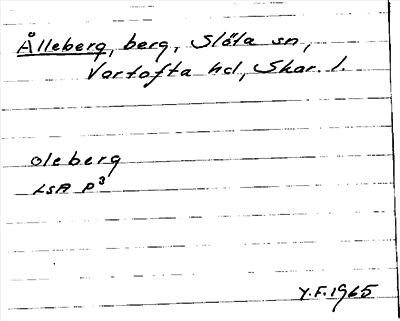 Ålleberg, berg, Slöta sn,
Vartofta hd, Skar. l.
oleberg
LSA p³
Y.F. 1965